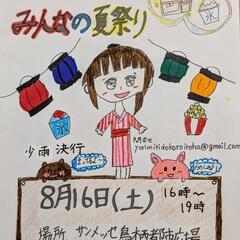 みんなの夏祭り
氷
問合せ
yorimitidokoroiroha@gmail.com
少雨決行
8月16日(土)
16時〜
19時
場所 サンメッセ鳥栖都市広場